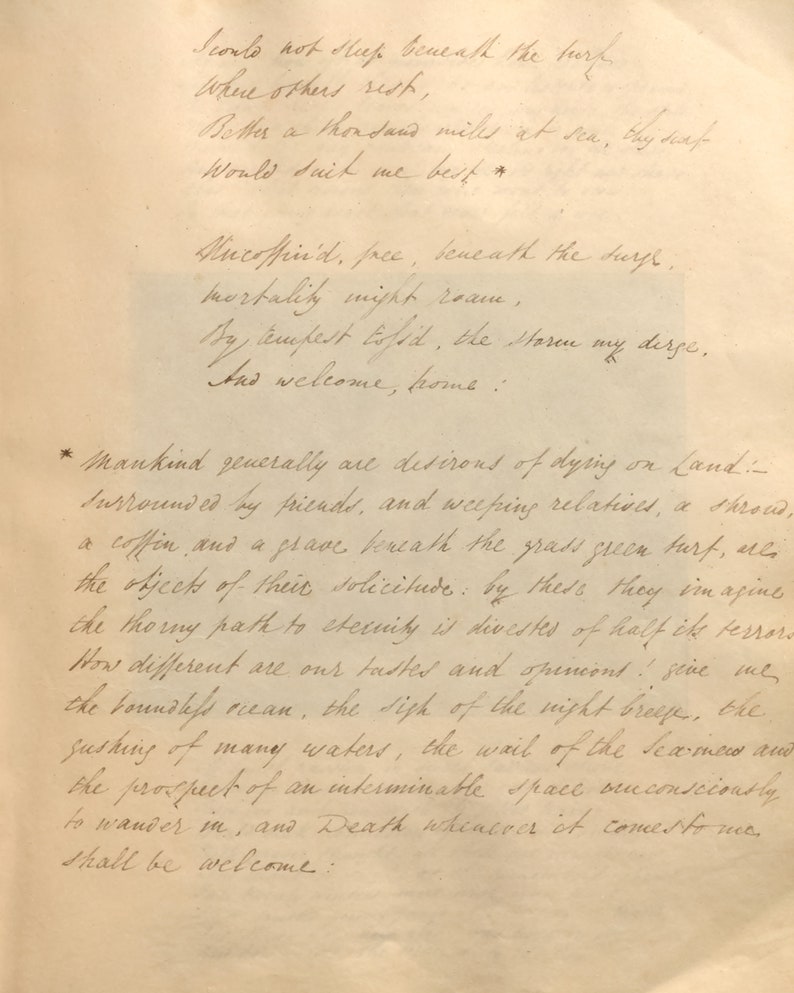 I could not sleep beneath the turf
Where others rest,
Better a thousand miles at sea, thy surf
Would suit me best *
Uncoffin'd, free, beneath the surge,
mortality might roam,
By tempest toss'd, the storm my dirge,
And welcome, home :
* Mankind generally are desirous of dying on Land!—
surrounded by friends, and weeping relatives, a shroud,
a coffin and a grave beneath the grass green turf, are
the objects of their solicitude : by these they imagine
the thorny path to eternity is divested of half its terrors
How different are our tastes and opinions ! give me
the boundless ocean, the sigh of the night breeze, the
gushing of many waters, the wail of the Sea-mew and
the prospect of an interminable space unconsciously
to wander in, and Death whenever it comes to me
shall be welcome :